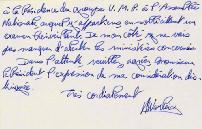 à la Présidence du groupe U.M.P. à l'Assemblée
Nationale, auquel j'appartiens en sollicitant un
examen bienveillant. De mon côté, je ne vais
pas manquer d'alerter les ministères concernés.
Dans l'attente, veuillez agréer, Monsieur
le Président, l'expression de ma considération distinguée.
Très cordialement